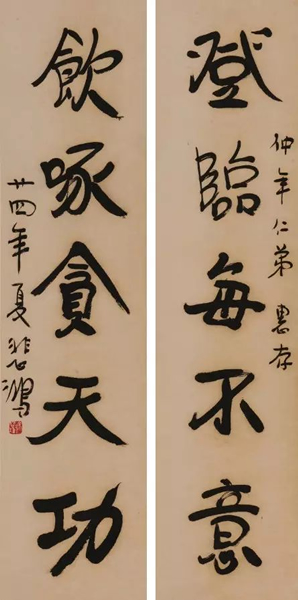 登臨每不意
仲年仁弟 惠存
飲啄貪天功
廿四年夏 悲鴻